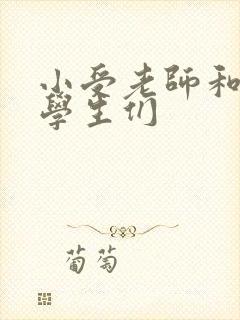 小受老師和
學生们
葡萄